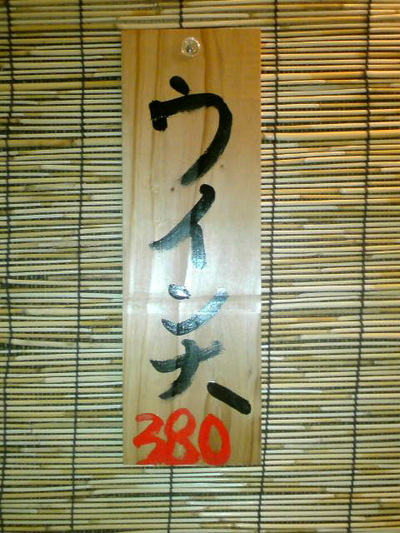 ウインナー
380